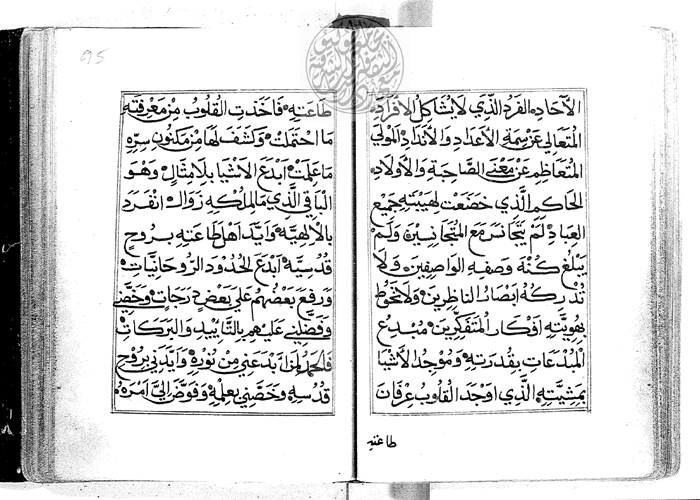 الآحاد الفرد الذي لا يشاكل الافراد
المتعالي عن سمة الأعداد والأنداد المولي
المتعاظم عن معنى الصاحبة والأولاد
الحاكم الذي خضعت لهيبته جميع
العباد لم يتجانس مع المتجانسين ولم
يبلغ كنه وصفه الواصفين ولا
تدركه ابصار الناظرين ولا تحوط
بهويته افكار المتفكرين مبدع
المبدعات بقدرته وموجد الأشيا
بمشيته الذي اوجد القلوب عرفان
طاعته
95
طاعته فاخذت القلوب من معرفته
ما احتملت وكشف لها من مكنون سره
ما علمت ابدع الأشيا بلا مثال وهو
الباقي الذي ما لملكه زوال انفرد
بالالهيه وايد أهل طاعته بروح
قدسيه ابدع الحدود الروحانيات
ورفع بعضهم علي بعض درجات وخصني
وفضلني عليهم بالتاييد والبركات
فالحمد لمن ابدعني من نوره وايدني بروح
قدسه وخصني بعلمه وفوض الي امره